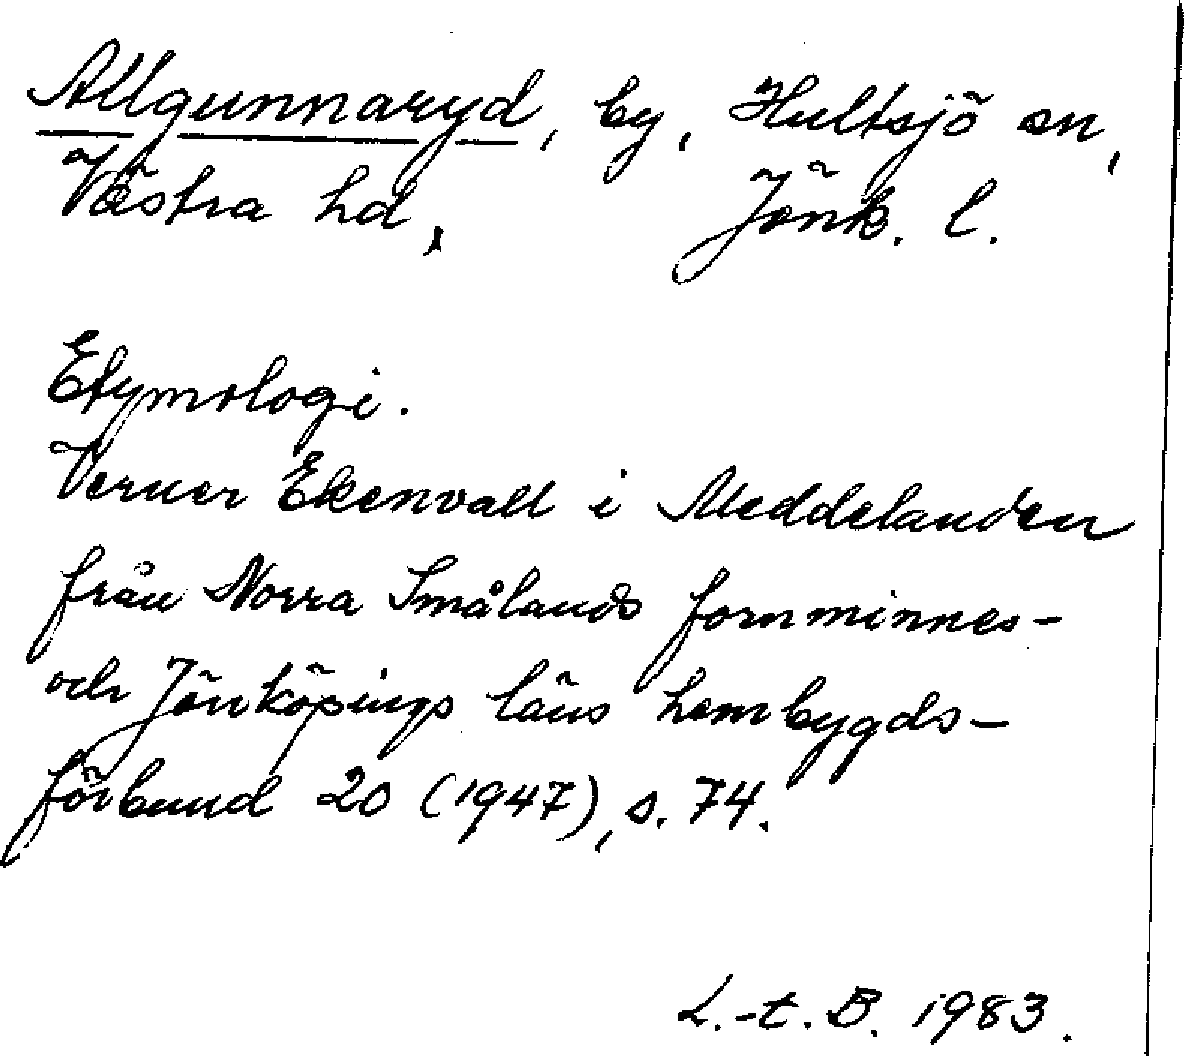 Allgunnaryd, by, Hultsjö sn,
Västra hd, Jönk. l.
Etymologi.
Verner Ekenvall i Meddelanden
från Norra Smålands fornminnes-
och Jönköpings läns hembygds-
förbund 20 (1947), s. 74.
L.-t. B. 1983.